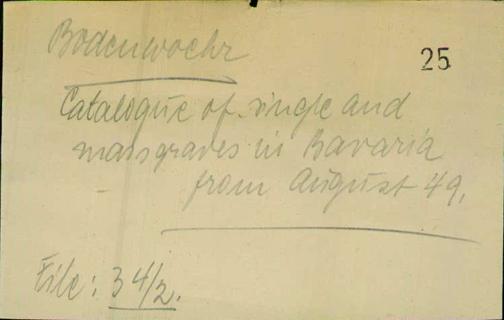 Bodenwoehr
25
Catalogue of single and
massgraves in Bavaria
from August 49.
File: 34/2.